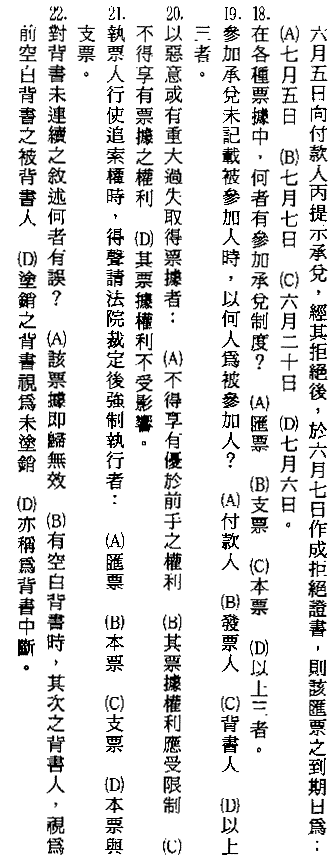 六月五日向付款人丙提示承兌，經其拒絕後，於六月七日作成拒絕證書，則該匯票之到期日爲：
(A)七月五日　(B)七月七日　(C)六月二十日　(D)七月六日。
18.在各種票據中，何者有參加承兌制度？　(A)匯票　(B)支票　(C)本票　(D)以上三者。
19.參加承兌未記載被參加人時，以何人爲被參加人？　(A)付款人　(B)發票人　(C)背書人　(D)以上
三者。
20.以惡意或有重大過失取得票據者：　(A)不得享有優於前手之權利　(B)其票據權利應受限制　(C)
不得享有票據之權利　(D)其票據權利不受影響。
21.執票人行使追索權時，得聲請法院裁定後強制執行者：　(A)匯票　(B)本票　(C)支票　(D)本票與
支票。
22.對背書未連續之敘述何者有誤？　(A)該票據即歸無效　(B)有空白背書時，其次之背書人，視爲
前空白背書之被背書人　(D)塗銷之背書視爲未塗銷　(D)亦稱爲背書中斷。